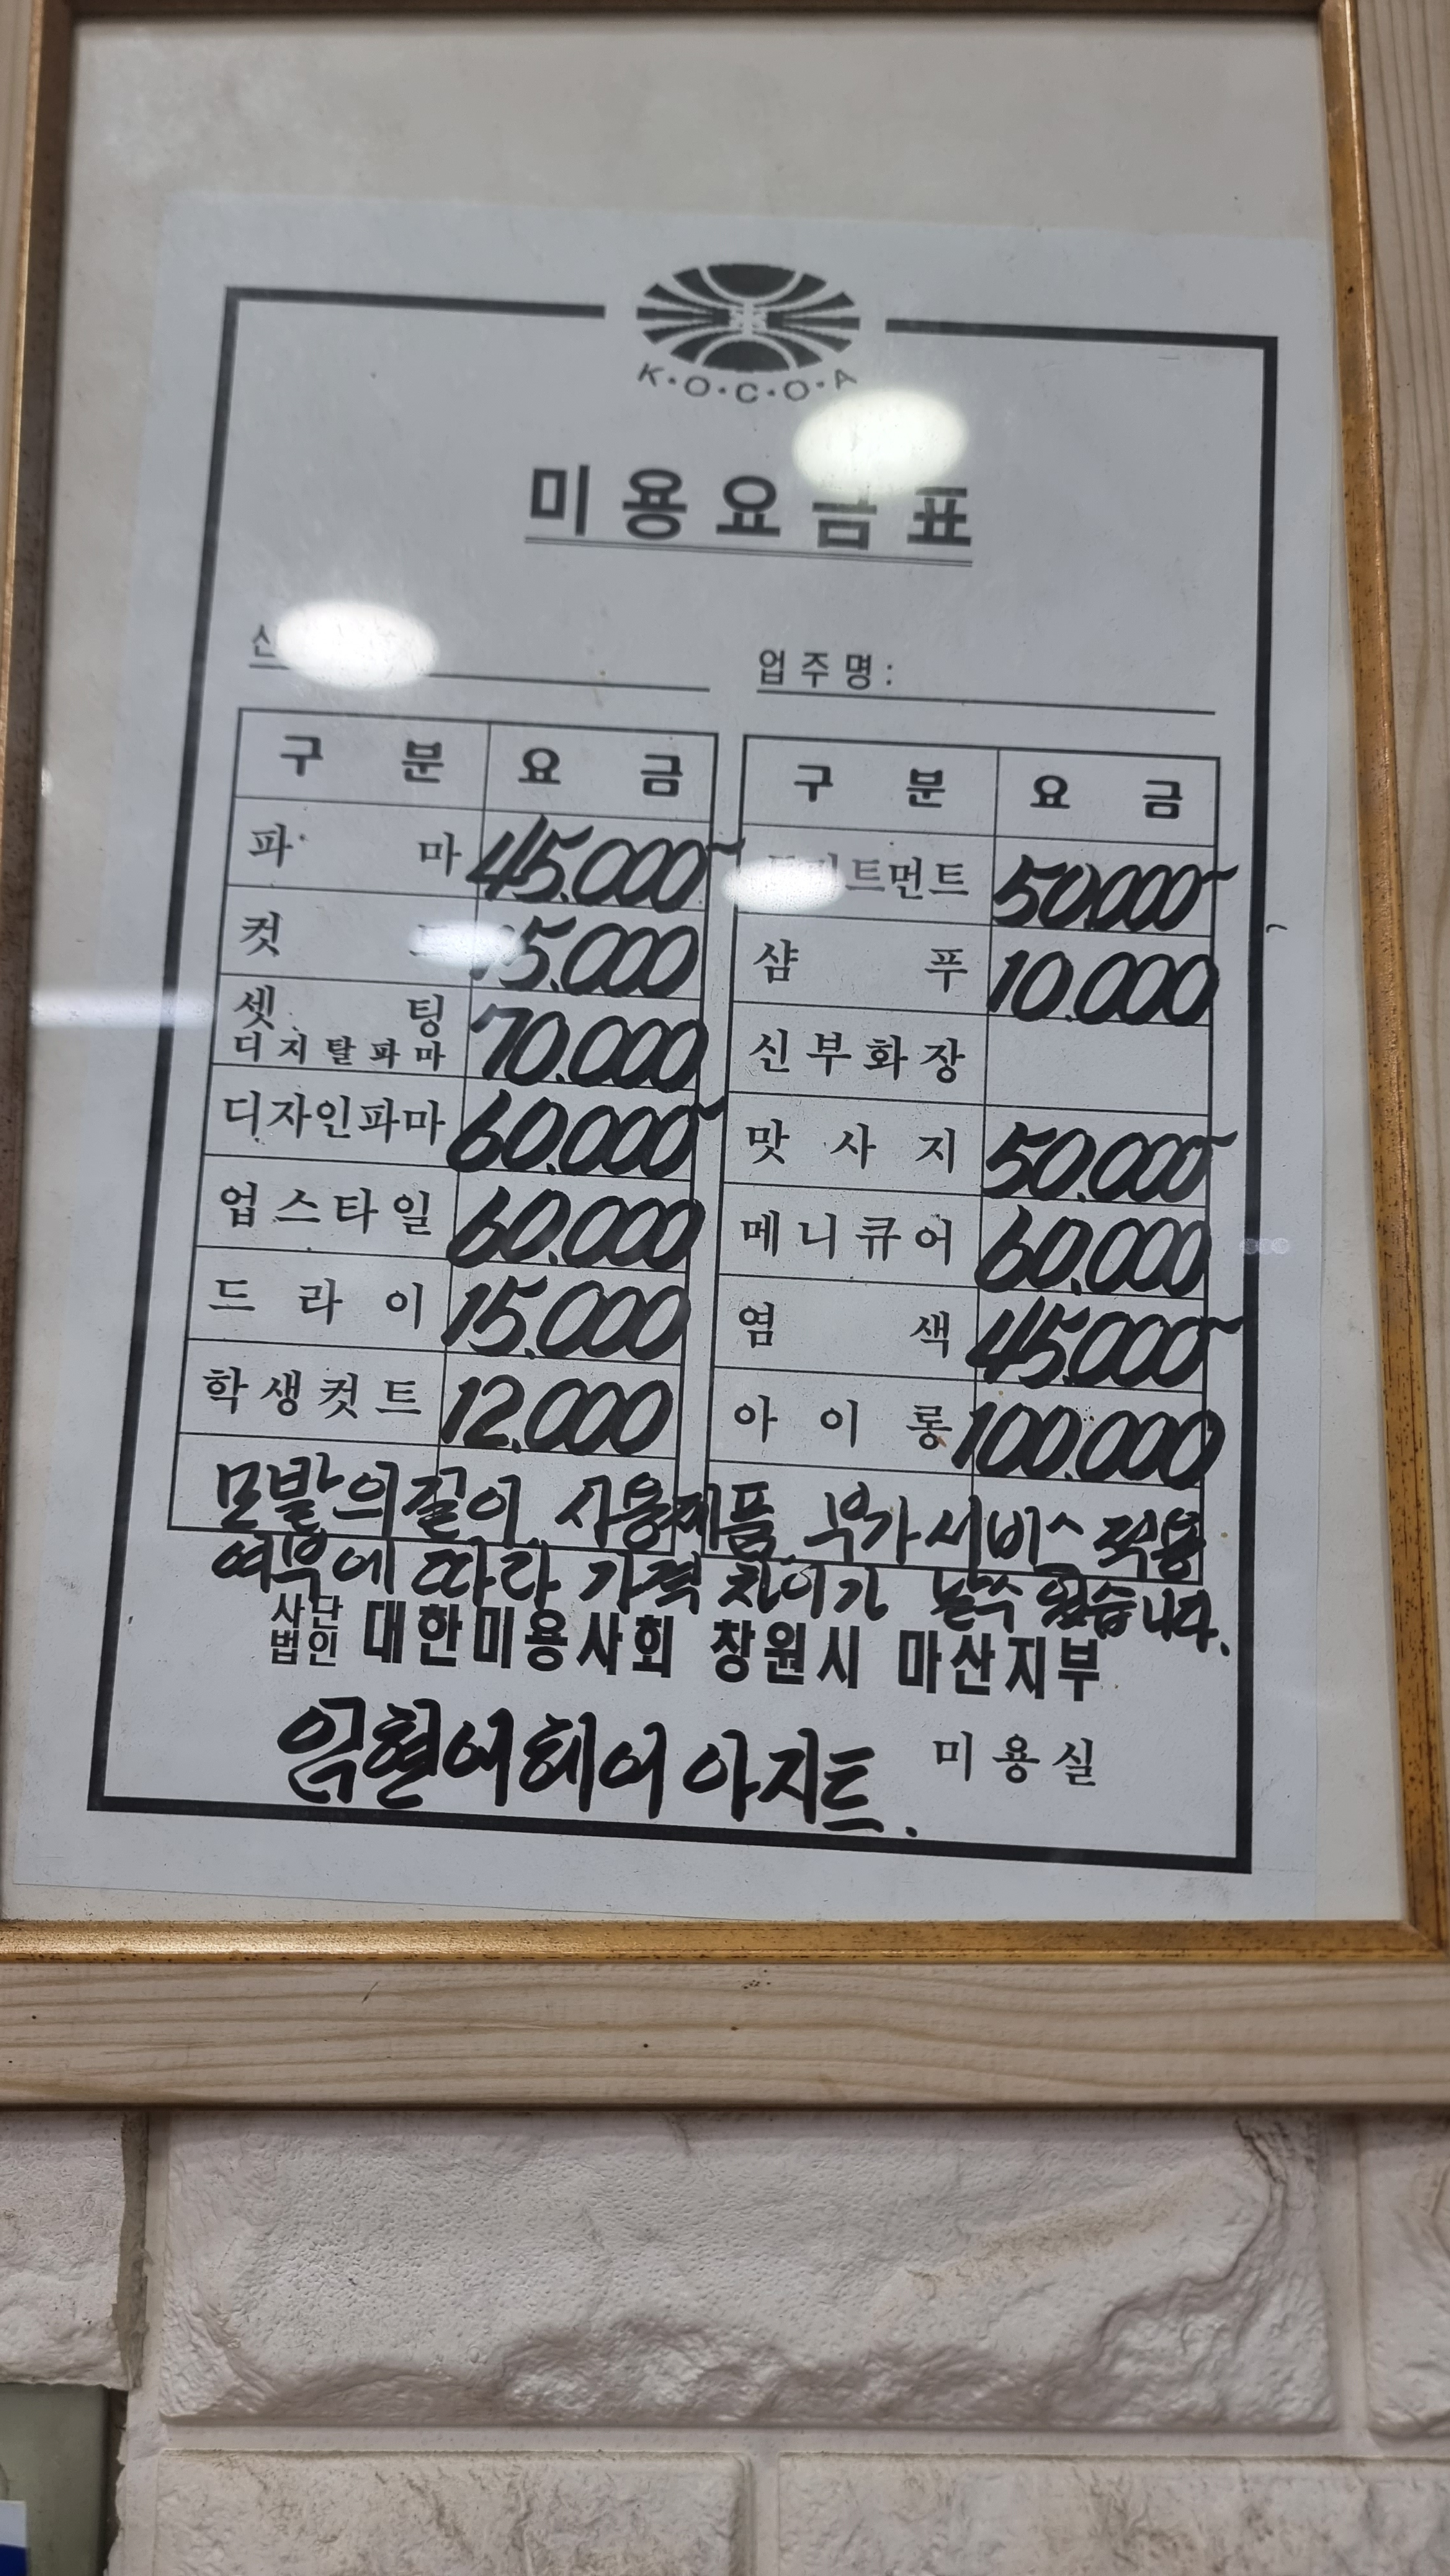 K·O·C·O·A
미용요금표
업주명:
구분 요금
파마 45.000~
컷 15.000
셋팅
디지탈파마 70.000
디자인파마 60.000~
업스타일 60.000
드라이 15.000
학생컷트 12.000
구분 요금
트먼트 50.000~
샴푸 10.000
신부화장
맛사지 50.000~
메니큐어 60.000
염색 45.000~
아이롱 100.000
모발의길이 사용제품 부가서비스 적용
여부에 따라 가격 차이가 날수 있습니다.
사단법인 대한미용사회 창원시 마산지부
임현어헤어 아지트. 미용실